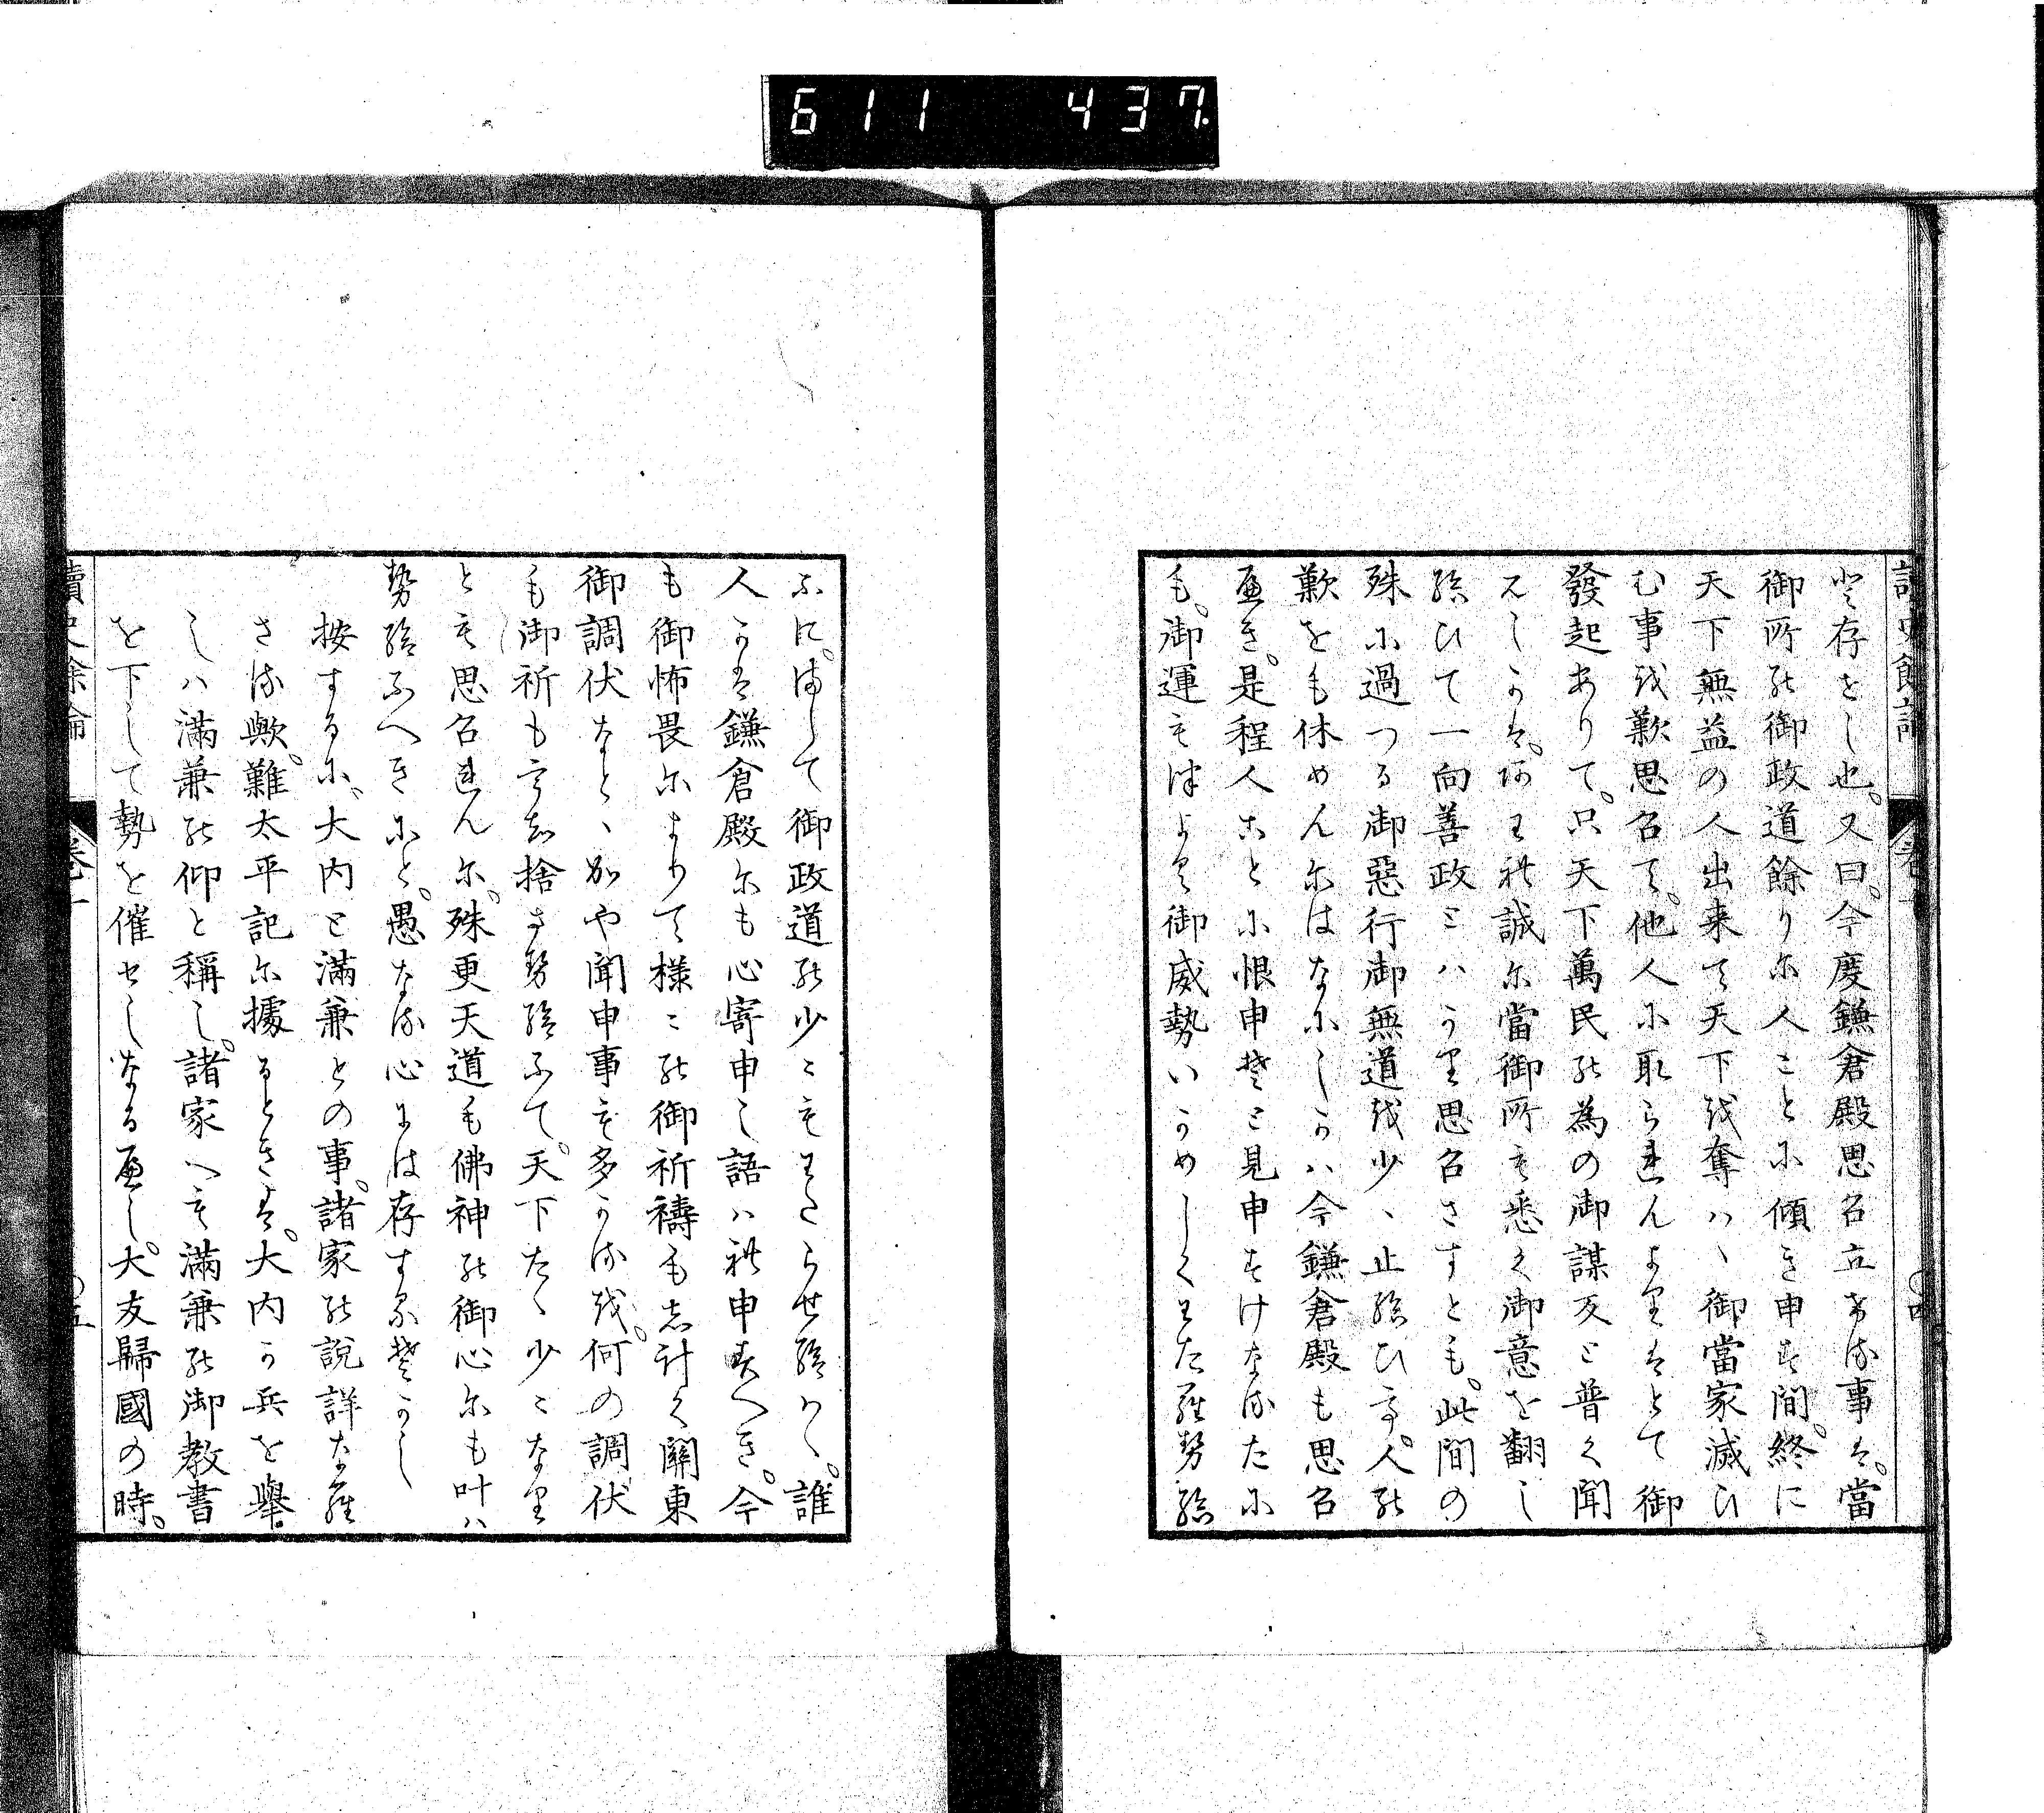 611 437
讀史餘論 卷十一 ○四
と存せし也。又曰。今度鎌倉殿思召立ある事は。當
御所の御政道餘りに人ことに傾き申す間。終に
天下無益の人出来て天下を奪はゝ御當家滅ひ
む事を歎思召て。他人に取られんよりはとて御
發起ありて。只天下萬民の為の御謀反と普く聞
えしかは。あはれ誠に當御所も悉く御意を翻し
給ひて一向善政こはうり思召さすとも。此間の
殊に過つる御惡行御無道を少ゝ止給ひて。人の
歎をも休めんにはなにしかは今鎌倉殿も思召
へき。是程人ことに恨申そと見申すけなるたに
も。御運もつよく御威勢いかめしくわたらせ給
ふに。まして御政道の少こもわたらせ給はゝ。誰
人かは鎌倉殿にも心寄申し語はれ申すへき。今
も御怖畏によりて様こ の御祈禱も志計く關東
御調伏なとゝ加や聞申事も多かるを。何の調伏
も御祈も打捨させ給ふて。天下たゝ少こなり
とも思召れんに。殊更天道も佛神の御心にも叶は
せ給ふへきにと。愚なる心には存するそかし
按するに。大内と滿兼との事。諸家の説詳なら
さる歟。難太平記に據るときは。大内か兵を擧
しは滿兼の仰と稱し。諸家へも滿兼の御教書
を下して勢を催せしなるへし。大友歸國の時。
讀史餘論 卷十一 ○五